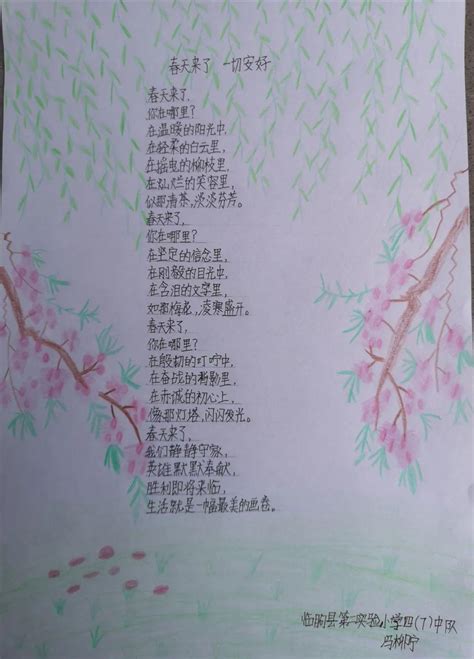 春天来了 一切安好
春天来了,
你在哪里?
在温暖的阳光中,
在轻柔的白云里,
在摇曳的柳枝里,
在灿烂的笑容里,
似那清茶,淡淡芬芳。
春天来了,
你在哪里?
在坚定的信念里,
在刚毅的目光中,
在含泪的文字里,
如那梅花,凌寒盛开。
春天来了,
你在哪里?
在殷切的叮咛中,
在奋战的背影里,
在赤诚的初心上,
像那灯塔,闪闪发光。
春天来了,
我们静静守家,
英雄默默奉献,
胜利即将来临,
生活就是一幅最美的画卷。
临朐县第二实验小学四(7)中队
冯柳宁